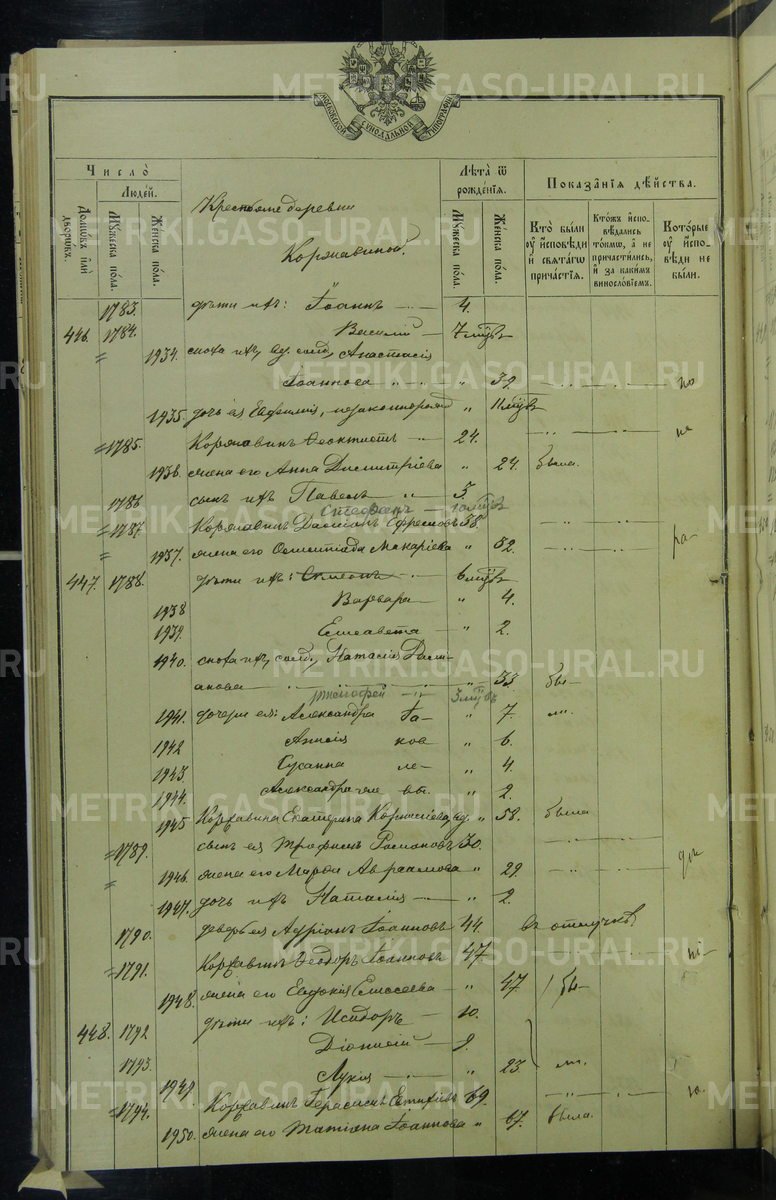 МОСКОВСКОЙ СѴНОДАЛЬНОЙ ТИПОГРАФІИ
Число̀
Людей.
Домѡвъ или дворѡвъ.
Мꙋжеска пола.
Женска пола.
Крестьяне деревни
Коржавиной.
Лѣта ѿ рожденїѧ.
Мꙋжеска пола.
Женска пола.
Показанїѧ дѣйства.
Кто̀ были оу исповѣди и свѧтагѡ причастїѧ.
Ктожъ исповѣдались токмѡ, а не причастились, и за какимъ винословїемъ.
Которые оу исповѣди не были.
1783. дѣти ихъ: Іоаннъ 4.
446. 1784. Василій 7 мцъ
1934. сноха ихъ, вд. солд. Анастасія
Іоаннова " 32
1935. дочь ея Евфимія, незаконнорожд " 11 мцъ
1785. Коржавинъ Ѳеоктистъ 24.
1936. жена его Анна Димитріева " 24. была.
1786 сынъ ихъ Павелъ 5.
Стефанъ 10 мцъ
1787. Коржавинъ Даміанъ Ефремовъ 58.
1937. жена его Макаріева " 52.
447. 1788. дѣти ихъ: Симеонъ 6 мцъ
1938 Варвара " 4.
1939. Елисавета " 2.
1940. сноха ихъ, солд. Наталія Даміанова " 33 бы
Тимофей 3 мцъ
1941. дочери ея: Александра " 7.
1942 Анисія " 6.
1943 Сусанна " 4.
1944. Александра " 2.
1945 Коржавина Екатерина Корниліева, вд. " 58. была
1789. сынъ ея Трофимъ Романовъ 30.
1946. жена его Марѳа Авраамова " 29
1947. дочь ихъ Наталія " 2.
1790. деверь ея Адріанъ Іоанновъ 44. въ отлучкѣ
1791. Коржавинъ Ѳеодоръ Іоанновъ 47
1948. жена его Евдокія Елисеева " 47 бы
448. 1792 дѣти ихъ: Исидоръ 10.
1793. Діонисій 9.
1949 Лукія " 23
1794. Коржавинъ Герасимъ Евтихіевъ 69.
1950. жена его Татіана Іоаннова " 67. была.
METRIKI.GASO-URAL.RU